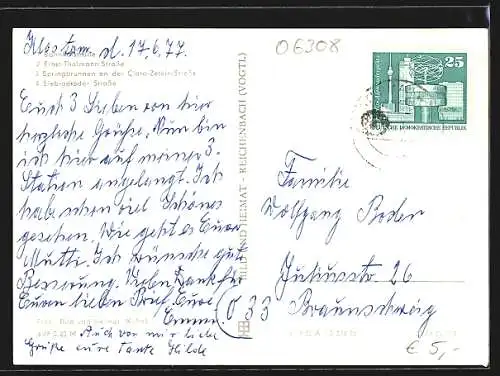 Klostern. d. 17.6.77
06308
2 Ernst-Thälmann-Straße
3 Springbrunnen an der Clara-Zetkin-Straße
4 Siebenröder Straße
Euch 3 Lieben von hier
herzliche Grüße. Nun bin
ich hier auf meiner 3.
Station angelangt. Ich
hab schon viel Schönes
gesehen. Wie geht es Eurer
Mutti. Ich wünsche gute
Besserung. Vielen Dank für
Euren lieben Brief. Eure
Emmi.
Auch von mir liebe
Grüße eure Tante Hilde
BILD UND HEIMAT REICHENBACH (VOGTL)
25
DEUTSCHE DEMOKRATISCHE REPUBLIK
Familie
Wolfgang Boder
Juliusstr. 26
033
Braunschweig
€ 5,-